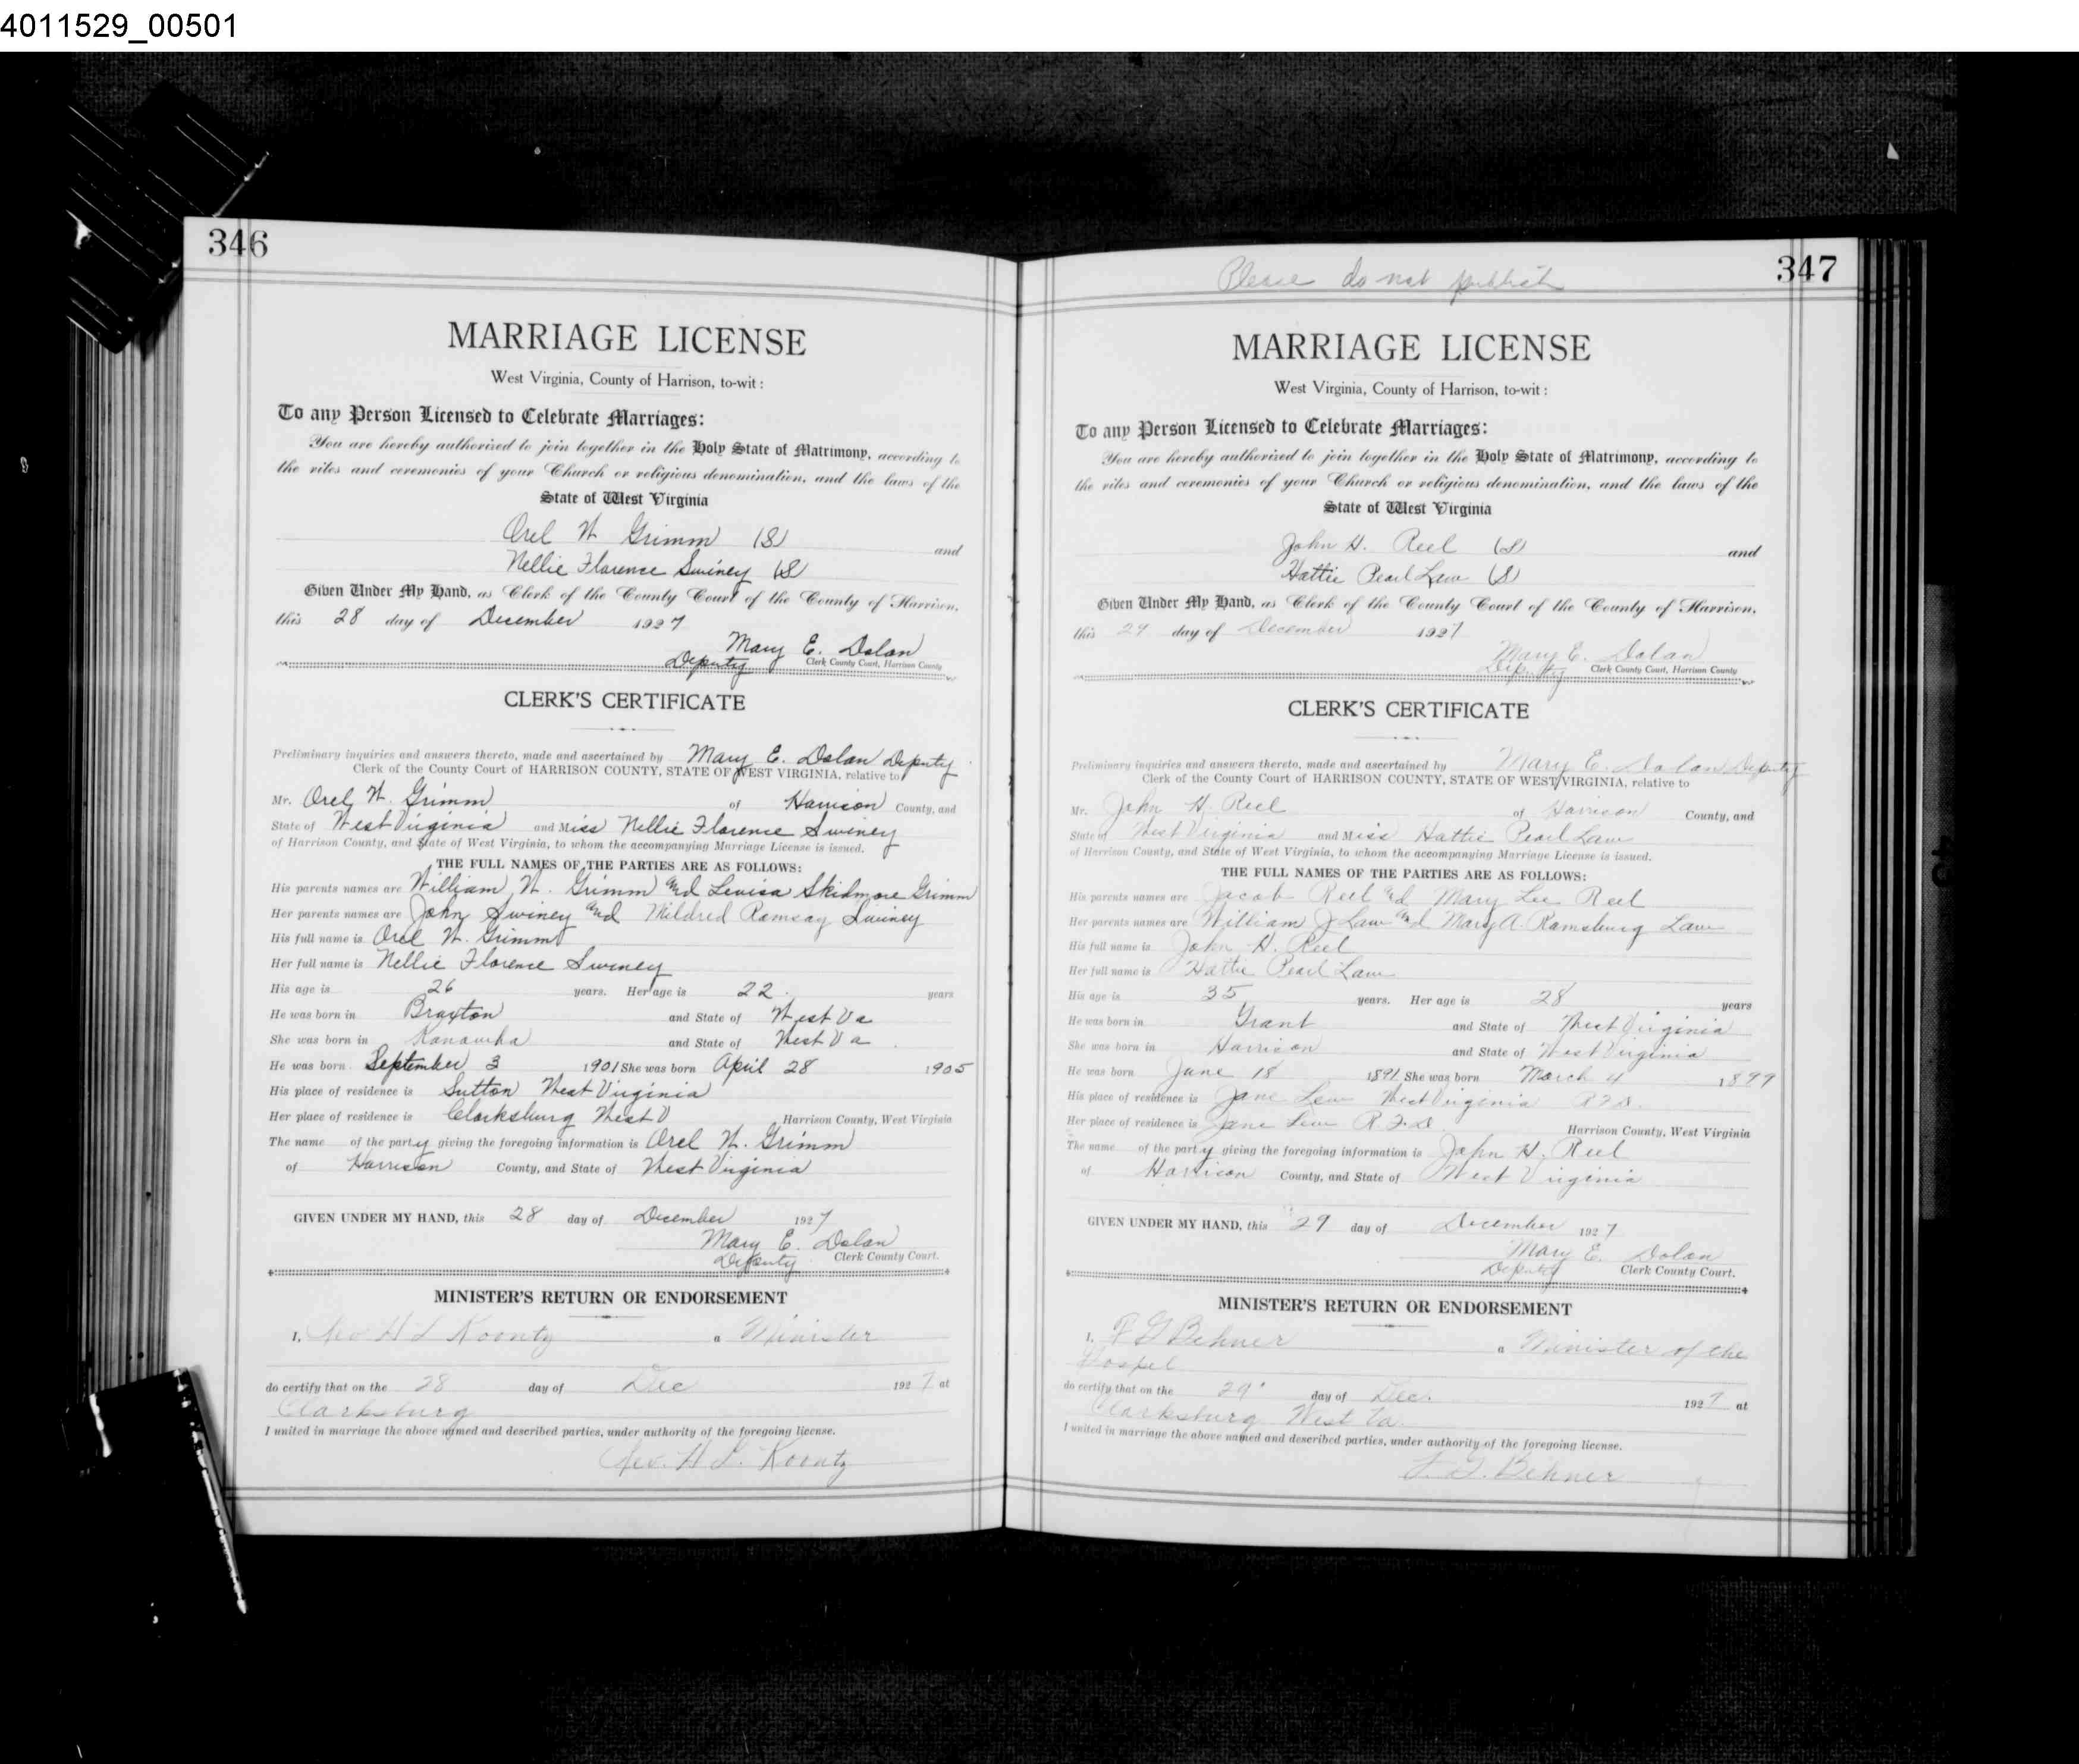 4011529_00501
346
MARRIAGE LICENSE
West Virginia, County of Harrison, to-wit:
To any Person Licensed to Celebrate Marriages:
You are hereby authorized to join together in the Holy State of Matrimony, according to
the rites and ceremonies of your Church or religious denomination, and the laws of the
State of West Virginia
Orel W Grimm (S)
and
Nellie Florence Swiney (S)
Given Under My Hand, as Clerk of the County Court of the County of Harrison,
this 28 day of December 1927
Mary E. Dolan
Deputy Clerk County Court, Harrison County
CLERK'S CERTIFICATE
Preliminary inquiries and answers thereto, made and ascertained by Mary E. Dolan Deputy
Clerk of the County Court of HARRISON COUNTY, STATE OF WEST VIRGINIA, relative to
Mr. Orel W. Grimm of Harrison County, and
State of West Virginia and Miss Nellie Florence Swiney
of Harrison County, and State of West Virginia, to whom the accompanying Marriage License is issued.
THE FULL NAMES OF THE PARTIES ARE AS FOLLOWS:
His parents names are William W. Grimm and Levisa Skidmore Grimm
Her parents names are John Swiney and Mildred Ramsay Swiney
His full name is Orel W. Grimm
Her full name is Nellie Florence Swiney
His age is 26 years. Her age is 22. years
He was born in Braxton and State of West Va
She was born in Kanawha and State of West Va.
He was born September 3 1901 She was born April 28 1905
His place of residence is Sutton West Virginia
Her place of residence is Clarksburg West V Harrison County, West Virginia
The name of the party giving the foregoing information is Orel W. Grimm
of Harrison County, and State of West Virginia
GIVEN UNDER MY HAND, this 28 day of December 1927
Mary E. Dolan
Deputy Clerk County Court.
MINISTER'S RETURN OR ENDORSEMENT
I, Rev H L Koontz a Minister
do certify that on the 28 day of Dec 1927 at
Clarksburg
I united in marriage the above named and described parties, under authority of the foregoing license.
Rev. H. L. Koontz
347
Please do not publish
MARRIAGE LICENSE
West Virginia, County of Harrison, to-wit:
To any Person Licensed to Celebrate Marriages:
You are hereby authorized to join together in the Holy State of Matrimony, according to
the rites and ceremonies of your Church or religious denomination, and the laws of the
State of West Virginia
John H. Reel (S)
and
Hattie Pearl Law (S)
Given Under My Hand, as Clerk of the County Court of the County of Harrison,
this 29 day of December 1927
Mary E. Dolan
Deputy Clerk County Court, Harrison County
CLERK'S CERTIFICATE
Preliminary inquiries and answers thereto, made and ascertained by Mary E. Dolan Deputy
Clerk of the County Court of HARRISON COUNTY, STATE OF WEST VIRGINIA, relative to
Mr. John H. Reel of Harrison County, and
State of West Virginia and Miss Hattie Pearl Law
of Harrison County, and State of West Virginia, to whom the accompanying Marriage License is issued.
THE FULL NAMES OF THE PARTIES ARE AS FOLLOWS:
His parents names are Jacob Reel and Mary Lee Reel
Her parents names are William J Law and Mary A. Ramsburg Law
His full name is John H. Reel
Her full name is Hattie Pearl Law
His age is 35 years. Her age is 28 years
He was born in Grant and State of West Virginia
She was born in Harrison and State of West Virginia
He was born June 18 1891 She was born March 4 1899
His place of residence is Jane Lew West Virginia R.F.D.
Her place of residence is Jane Lew R.F.D. Harrison County, West Virginia
The name of the party giving the foregoing information is John H. Reel
of Harrison County, and State of West Virginia
GIVEN UNDER MY HAND, this 29 day of December 1927
Mary E. Dolan
Deputy Clerk County Court.
MINISTER'S RETURN OR ENDORSEMENT
I, F G Behner a Minister of the
Gospel
do certify that on the 29" day of Dec. 1927 at
Clarksburg West Va.
I united in marriage the above named and described parties, under authority of the foregoing license.
F. G. Behner